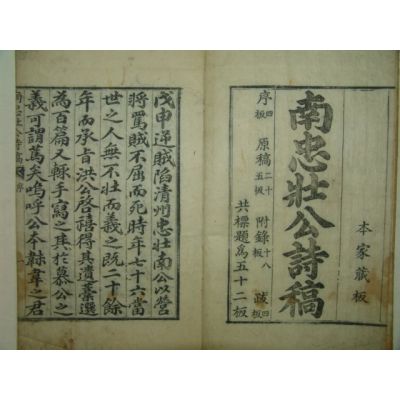 本家藏板
南忠壯公詩稿
序四板 原稿二十五板 附錄十八板 跋四板
共標題爲五十二板
戊申逆賊陷清州忠壯南公以營
將罵賊不屈而死時年七十六當
世之人無不壯而義之既二十餘
年而承旨洪公啓禧得其遺藁選
為百篇又躳手寫之其於慕公之
義可謂篤矣嗚呼公本韎韋之君
南忠壯公詩稿 序